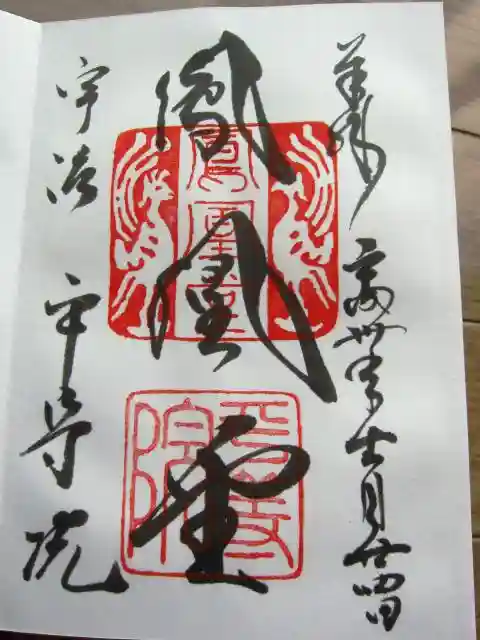 奉拝
十一月廿四日
鳳凰堂
宇治 平等院
鳳凰堂
平等院